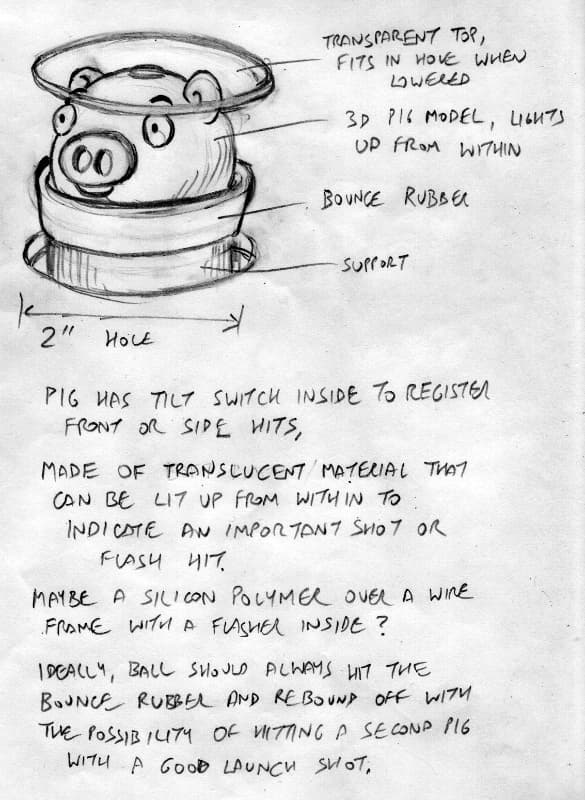 TRANSPARENT TOP,
FITS IN HOLE WHEN
LOWERED
3D PIG MODEL, LIGHTS
UP FROM WITHIN
BOUNCE RUBBER
SUPPORT
2" HOLE
PIG HAS TILT SWITCH INSIDE TO REGISTER
FRONT OR SIDE HITS,
MADE OF TRANSLUCENT MATERIAL THAT
CAN BE LIT UP FROM WITHIN TO
INDICATE AN IMPORTANT SHOT OR
FLASH HIT.
MAYBE A SILICON POLYMER OVER A WIRE
FRAME WITH A FLASHER INSIDE?
IDEALLY, BALL SHOULD ALWAYS HIT THE
BOUNCE RUBBER AND REBOUND OFF WITH
THE POSSIBILITY OF HITTING A SECOND PIG
WITH A GOOD LAUNCH SHOT.